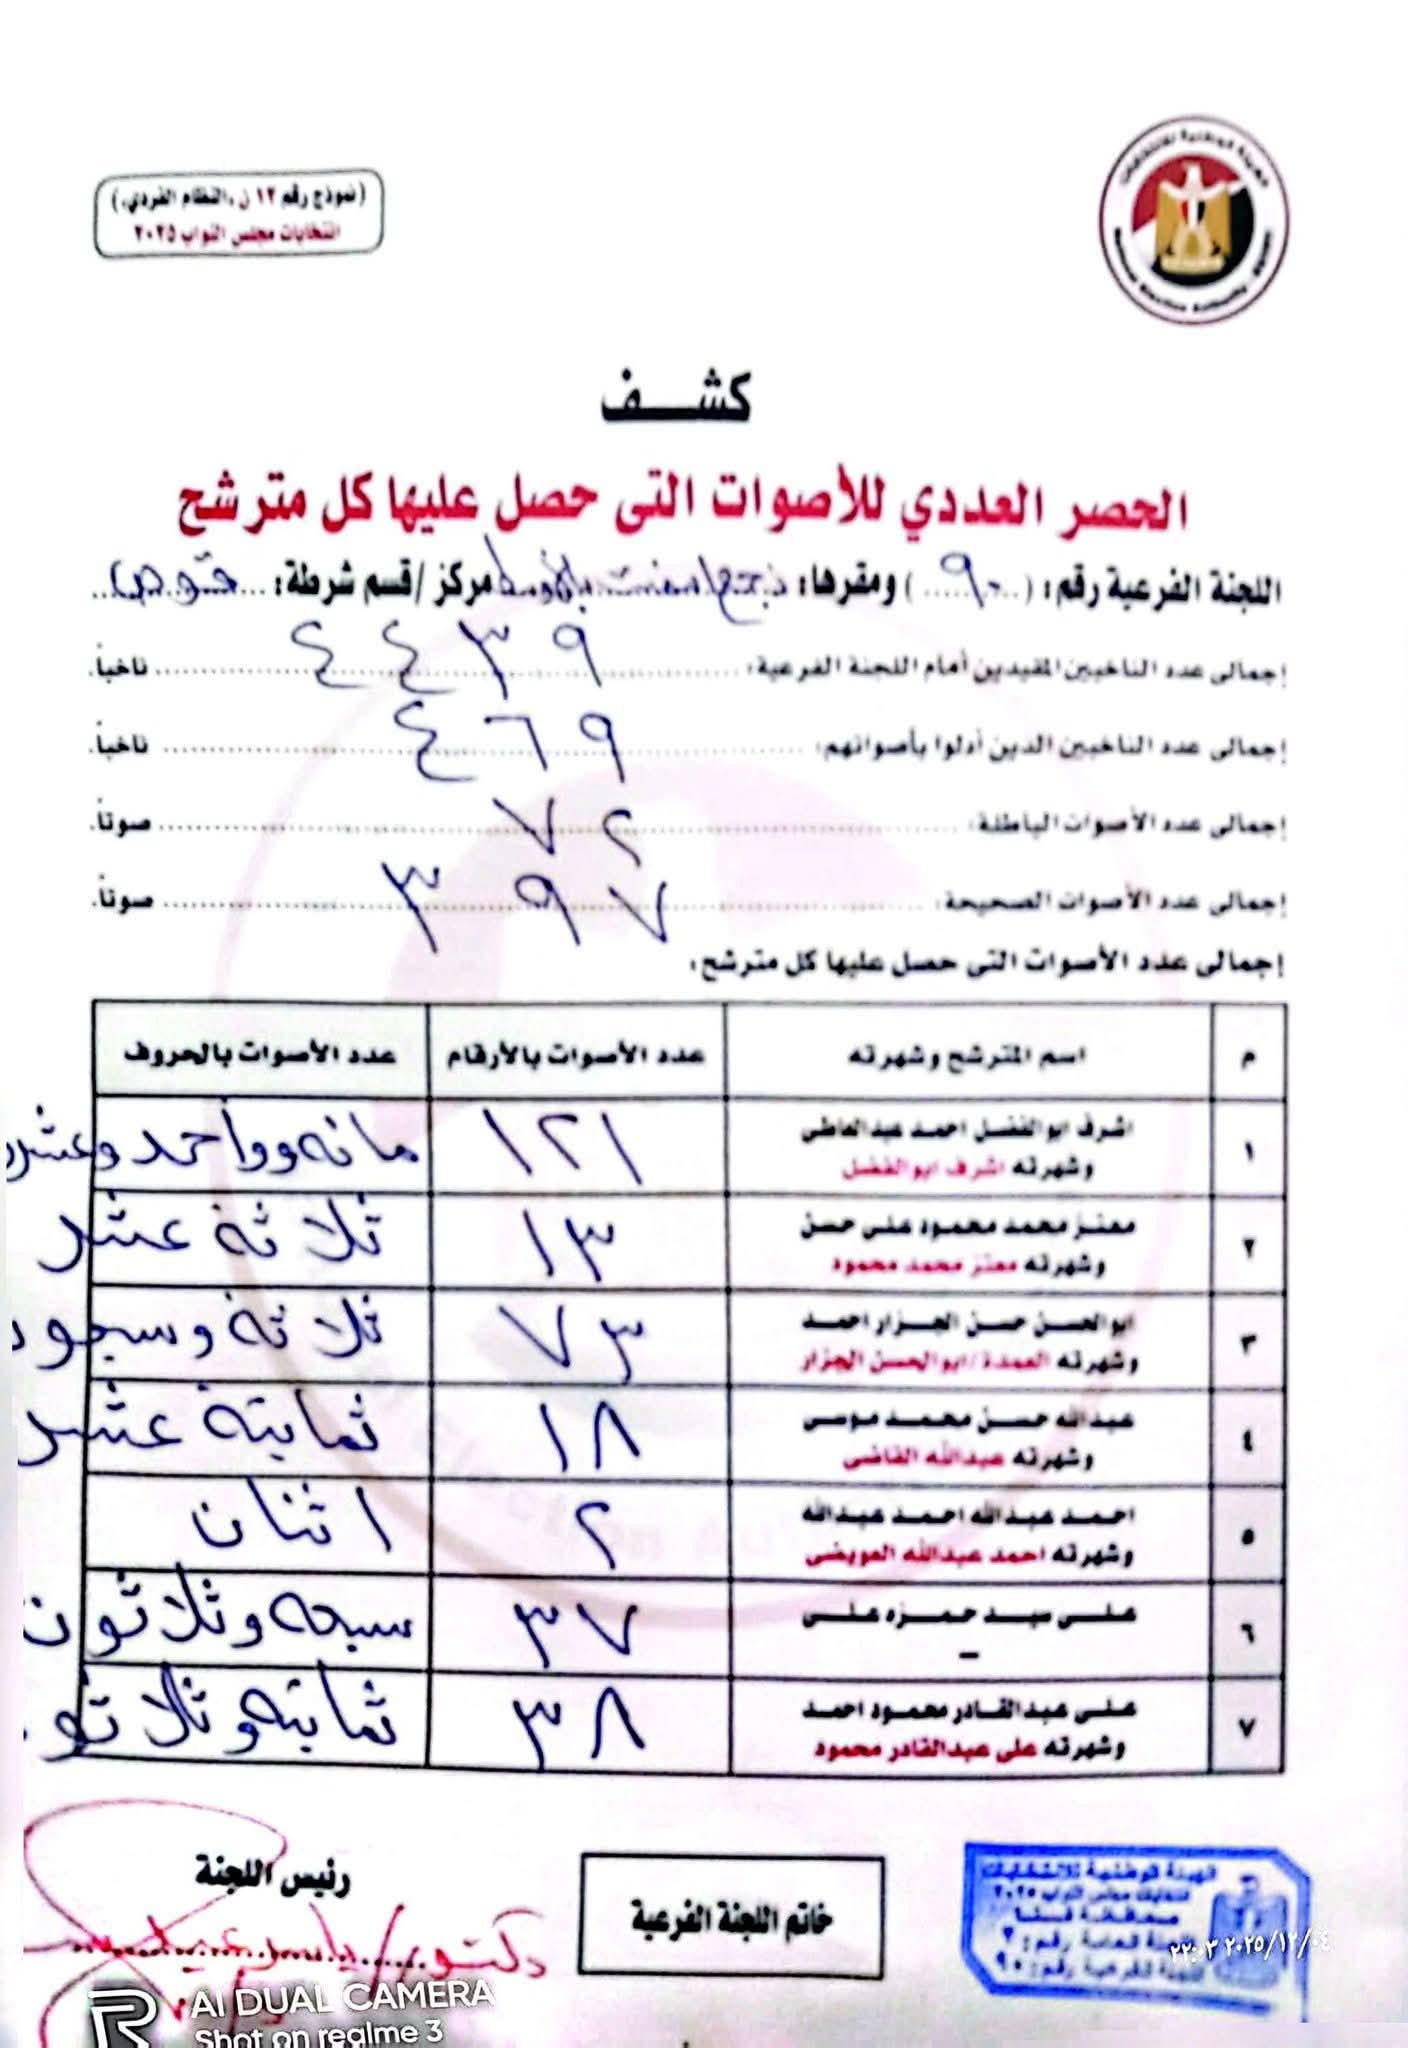 (نموذج رقم ١٢ ن ،النظام الفردي،)
انتخابات مجلس النواب ٢٠٢٥
الهيئة الوطنية للانتخابات
National Election Authority - Egypt
كشف
الحصر العددي للأصوات التى حصل عليها كل مترشح
اللجنة الفرعية رقم: ( ٩٠ ) ومقرها: مركز /قسم شرطة: قوص
إجمالى عدد الناخبين المقيدين أمام اللجنة الفرعية: ٤٤٣٩ ناخباً.
إجمالى عدد الناخبين الذين أدلوا بأصواتهم: ٤٦٩ ناخباً.
إجمالى عدد الأصوات الباطلة: ٧٢ صوتاً.
إجمالى عدد الأصوات الصحيحة: ٣٩٧ صوتاً.
إجمالى عدد الأصوات التى حصل عليها كل مترشح:
م اسم المترشح وشهرته عدد الأصوات بالأرقام عدد الأصوات بالحروف
١ اشرف ابوالفضل احمد عبدالعاطى ١٢١ مائه وواحد وعشرو
وشهرته اشرف ابوالفضل
٢ معتز محمد محمود على حسن ١٣ ثلاثة عشر
وشهرته معتز محمد محمود
٣ ابوالحسن حسن الجزار احمد ٧٣ ثلاثة وسبعو
وشهرته العمدة/ابوالحسن الجزار
٤ عبدالله حسن محمد موسى ١٨ ثمانية عشر
وشهرته عبدالله القاضى
٥ احمد عبدالله احمد عبدالله ٢ اثنان
وشهرته احمد عبدالله العويضى
٦ على سيد حمزه على ٣٧ سبعه وثلاثون
–
٧ على عبدالقادر محمود احمد ٣٨ ثمانيه وثلاثو
وشهرته على عبدالقادر محمود
رئيس اللجنة
دكتور/ ياسر
خاتم اللجنة الفرعية
الهيئة الوطنية للانتخابات
انتخابات مجلس النواب ٢٠٢٥
محافظة قنا
اللجنة العامة رقم: ٢
اللجنة الفرعية رقم: ٩٠
٢٠٢٥/١٢/٠٤ ٢٢:٠٣
AI DUAL CAMERA
Shot on realme 3